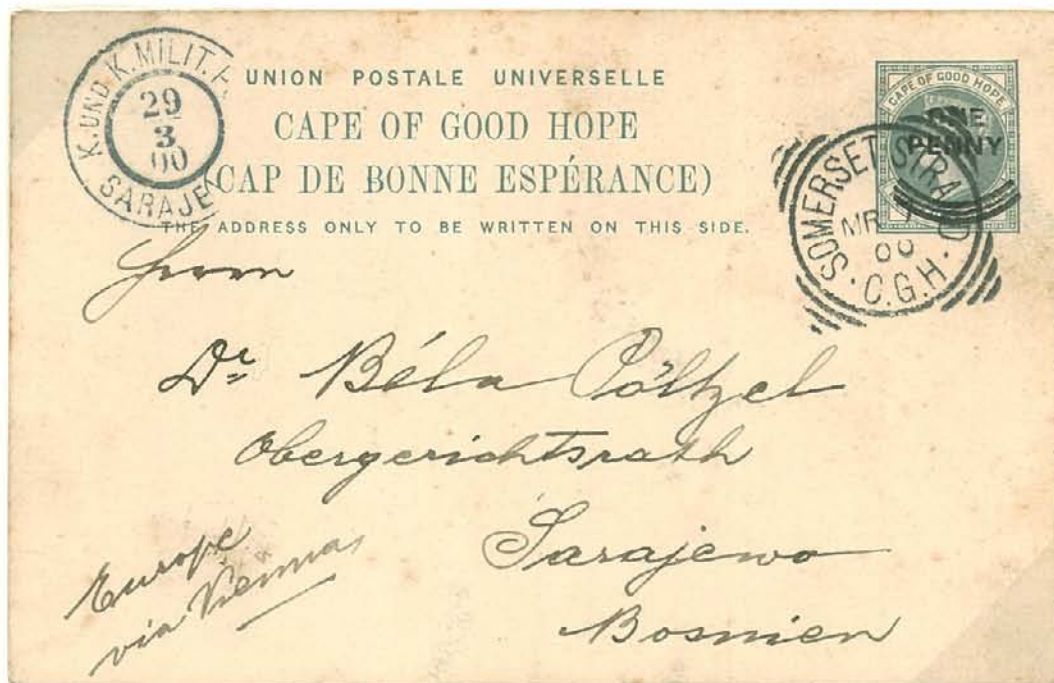 K. UND K. MILIT.
29
3
00
SARAJE
UNION POSTALE UNIVERSELLE
CAPE OF GOOD HOPE
(CAP DE BONNE ESPÉRANCE)
THE ADDRESS ONLY TO BE WRITTEN ON THIS SIDE.
CAPE OF GOOD HOPE
ONE
PENNY
SOMERSET STRAND
MR
00
· C.G.H. ·
Herrn
Dr Béla Pöltzel
Obergerichtsrath
Sarajewo
Bosnien
Europe
via Vienna